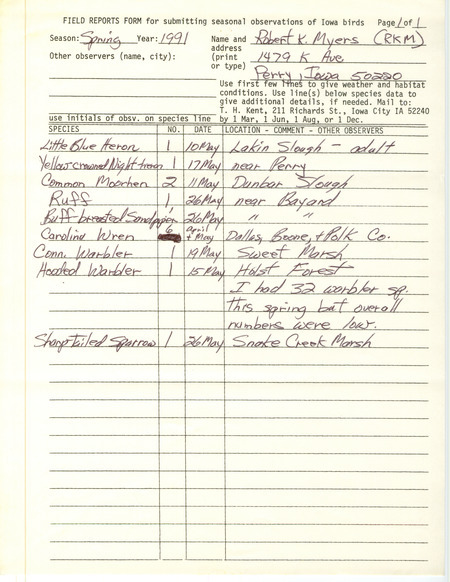 FIELD REPORTS FORM for submitting seasonal observations of Iowa birds Page 1 of 1
Season: Spring Year: 1991 Name and Robert K. Myers (RKM)
Other observers (name, city): address
(print 1479 K Ave
or type) Perry, Iowa 50220
Use first few lines to give weather and habitat
conditions. Use line(s) below species data to
give additional details, if needed. Mail to:
T. H. Kent, 211 Richards St., Iowa City IA 52240
use initials of obsv. on species line by 1 Mar, 1 Jun, 1 Aug, or 1 Dec.
SPECIES NO. DATE LOCATION - COMMENT - OTHER OBSERVERS
Little Blue Heron 1 10 May Lakin Slough - adult
Yellow-crowned Night heron 1 17 May near Perry
Common Moorhen 2 11 May Dunbar Slough
Ruff 1 26 May near Bayard
Buff-breasted Sandpiper 26 May " "
Carolina Wren 6 April + May Dallas, Boone, + Polk Co.
Conn. Warbler 1 19 May Sweet Marsh
Hooded Warbler 1 15 May Holst Forest
I had 32 warbler sp.
this spring but overall
numbers were low.
Sharp-tailed Sparrow 1 26 May Snake Creek Marsh